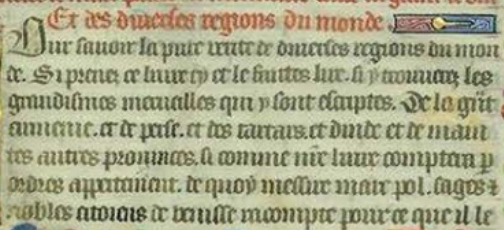 Et des diuerses regions du monde
Pur sauoir la pure uerite de diuerses regions du mon
de. Si prenez ce liure cy et le faittes lire. si y trouuerez les
grandismes meruailles qui y sont escriptes. De la grāt
ermenie. et de perse. et des tartars. et dinde et de main
tes autres prouinces. si comme nr̄e liure comptera p
ordres appertemēt. de quoy messire marc pol. sages ⁊
nobles citoiens de uenisse racompte pour ce que il le